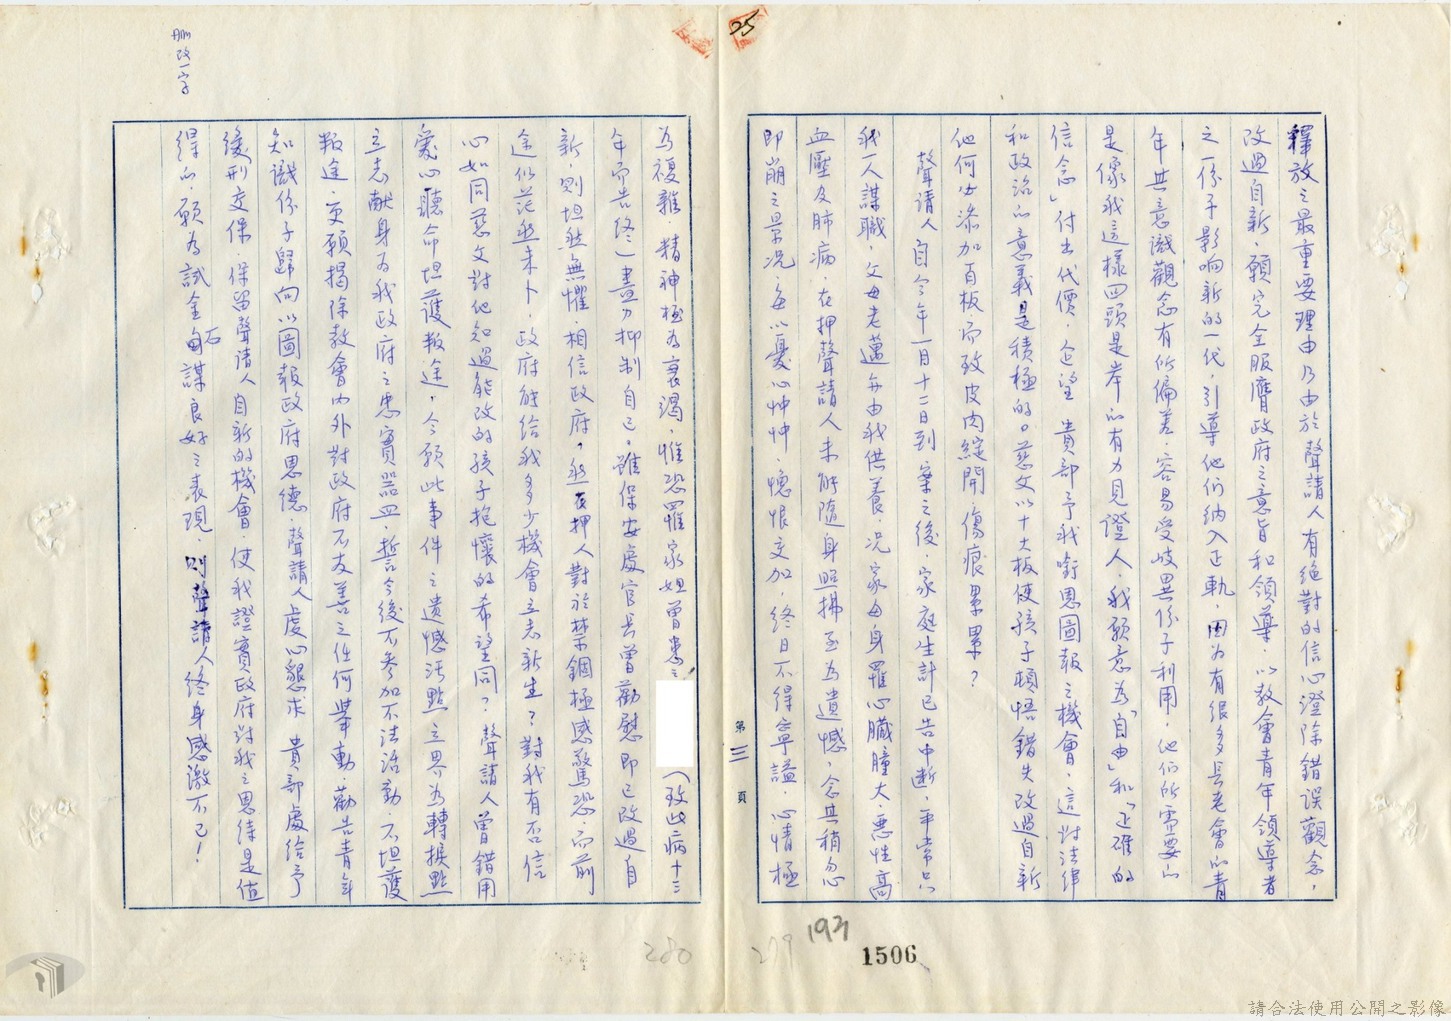 25
釋放之最重要理由乃由於聲請人有絕對的信心澄除錯誤觀念，
改過自新，願完全服膺政府之意旨和領導，以教會青年領導者
之一份子影响新的一代，引導他們納入正軌，因為有很多長老會的青
年其意識觀念有所偏差，容易受歧異份子利用，他们所需要的
是像我這樣回頭是岸的有力見證人，我願意為「自由」和「正確的
信念」付出代價，企望 貴部予我銜恩圖報之機會，這對法律
和政治的意義是積極的。慈父以十大板使孩子頓悟錯失改過自新
他何必添加百板而致皮肉綻開傷痕累累？
聲請人自今年一月十二日到案之後，家庭生計已告中斷，平常只
我一人謀職，父母老邁毎由我供養，況家母身罹心臟腫大，惡性高
血壓及肺病，在押聲請人未能隨身照拂至為遺憾，念其稍忽
即崩之景況，每以憂心忡忡，憶恨交加，終日不得寧謐，心情極
第三頁
為複雜 精神極為衰竭，惟恐罹家姐曾患之
（致此病十三
年而告終）盡力抑制自己，雖保安處官長曾勸慰即已改過自
新，則坦然無懼，相信政府，然在押人對於禁錮極感驚恐，而前
途似茫然未卜，政府能給我多少機會立志新生？對我有否信
心如同慈父對他知過能改的孩子抱懷的希望同？聲請人曾錯用
愛心聽命坦護叛途，今願此事件之遺憾污點立界為轉捩點
立志献身為我政府之忠實器皿，誓今後不參加不法活動，不坦護
叛途，更願揭除教會內外對政府不友善之任何舉動，勸告青年
知識份子歸向以圖報政府恩德，聲請人虔心懇求 貴部處給予
緩刑交保，保留聲請人自新的機會，使我證實政府對我之恩待是值
得的，願為試金石自謀良好之表現，則聲請人終身感激不已！
刪改一字
280
279
193
1506
請合法使用公開之影像